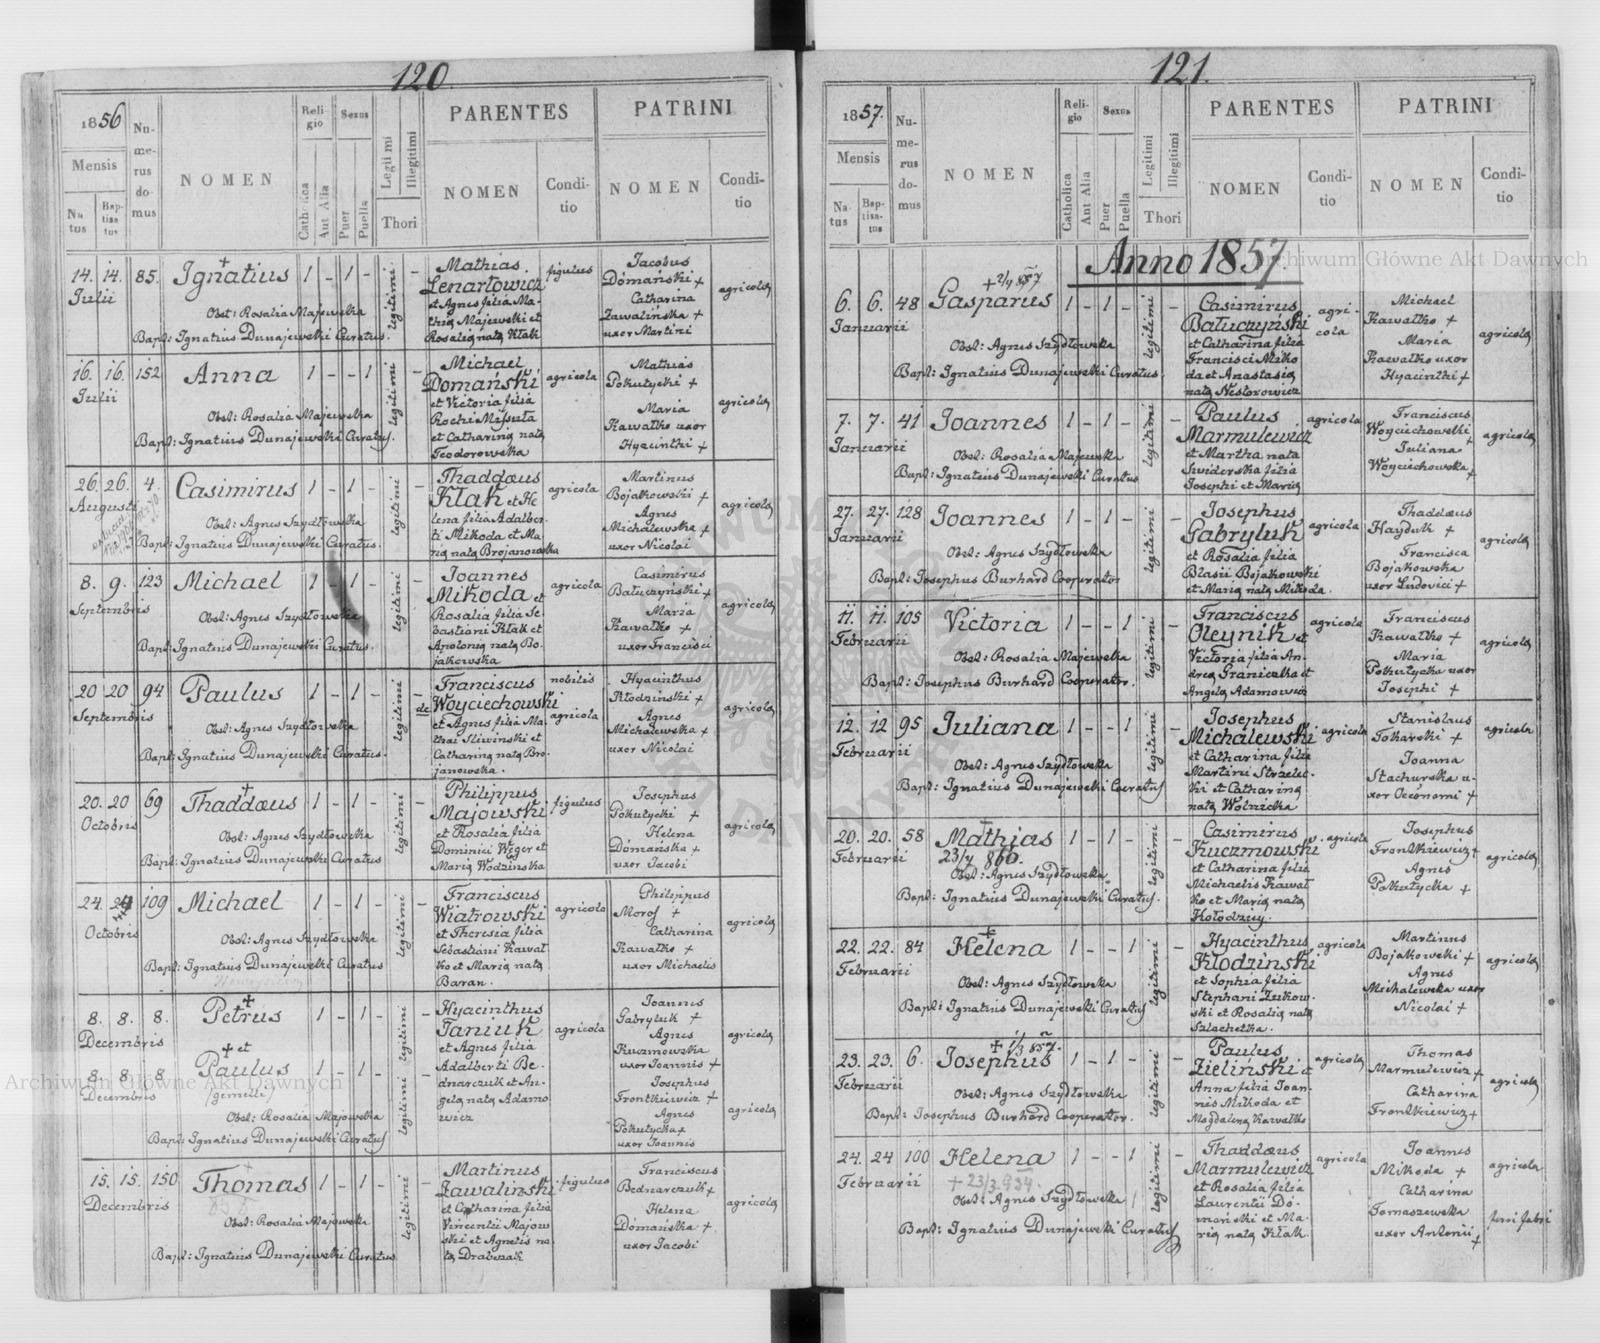 120.
1856
Mensis
Natus
Baptisatus
Numerus domus
NOMEN
Religio
Catholica
Aut Alia
Sexus
Puer
Puella
Legitimi
Illegitimi
Thori
PARENTES
NOMEN
Conditio
PATRINI
NOMEN
Conditio
14. 14. 85. Ignatius 1 - 1 - legitimi -
Julii
Obst: Rosalia Majewska
Bapt: Ignatius Dunajewski Curatus.
Mathias
Lenartowicz
et Agnes filia Ma-
thia Majewski et
Rosalia nata Kłak
figulus
Jacobus
Domański +
Catharina
Zawalińska +
uxor Martini
agricola
16. 16. 152 Anna 1 - - 1 legitimi -
Julii
Obst: Rosalia Majewska
Bapt: Ignatius Dunajewski Curatus.
Michael
Domański
et Victoria filia
Rochi Misuta
et Catharina nata
Teodorowska
agricola
Mathias
Pokutycki +
Maria
Kawałko uxor
Hyacinthi +
agricola
26. 26. 4. Casimirus 1 - 1 - legitimi -
Augusti
Obst: Agnes Szydłowska
Bapt: Ignatius Dunajewski Curatus.
Thaddæus
Kłak et He-
lena filia Adalber-
ti Mikoda et Ma-
ria nata Brojanowska
agricola
Martinus
Bojakowski +
Agnes
Michalewska +
uxor Nicolai
agricola
8. 9. 123 Michael 1 - 1 - legitimi -
Septembris
Obst: Agnes Szydłowska
Bapt: Ignatius Dunajewski Curatus.
Joannes
Mikoda et
Rosalia filia Se-
bastiani Kłak et
Apolonia nata Bo-
jakowska
agricola
Casimirus
Bałuczyński +
Maria
Kawałko +
uxor Francisci
agricola
20 20 94 Paulus 1 - 1 - legitimi -
Septembris
Obst: Agnes Szydłowska
Bapt: Ignatius Dunajewski Curatus.
Franciscus
de Woyciechowski
et Agnes filia Ma-
thai Sliwinski et
Catharina nata Bro-
janowska.
nobilis
agricola
Hyacinthus
Kłodziński +
Agnes
Michalewska +
uxor Nicolai
agricola
20. 20 69 Thaddæus 1 - 1 - legitimi -
Octobris
Obst: Agnes Szydłowska
Bapt: Ignatius Dunajewski Curatus
Philippus
Majowski
et Rosalia filia
Dominici Weger et
Maria Wodzinska
figulus
Josephus
Pokutycki +
Helena
Domańska +
uxor Jacobi
agricola
24. 24 109 Michael 1 - 1 - legitimi -
Octobris
Obst: Agnes Szydłowska
Bapt: Ignatius Dunajewski Curatus
Franciscus
Wiatrowski
et Theresia filia
Sebastiani Kawał-
ko et Maria nata
Baran.
agricola
Philippus
Moroz +
Catharina
Kawałko +
uxor Michaelis
agricola
8. 8. 8. Petrus 1 - 1 - legitimi -
Decembris
et
8. 8. 8 Paulus 1 - 1 - legitimi
Decembris
(gemelli)
Obst: Rosalia Majowska
Bapt: Ignatius Dunajewski Curatus
Hyacinthus
Taniuk
et Agnes filia
Adalberti Be-
dnarczuk et An-
gela nata Adamo
wicz
agricola
Joannes
Gabryluk +
Agnes
Kuczmowska
uxor Joannis +
agricola
Josephus
Frontkiewicz +
Agnes
Pokutycka +
uxor Joannis
agricola
15. 15. 150 Thomas 1 - 1 - legitimi -
Decembris
Obst: Rosalia Majowska
Bapt: Ignatius Dunajewski Curatus
Martinus
Zawalinski
et Catharina filia
Vincentii Majow-
ski et Agnetis na-
ta Drabczak
figulus
Franciscus
Bednarczuk +
Helena
Domańska +
uxor Jacobi
agricola
121.
1857.
Mensis
Natus
Baptisatus
Numerus domus
NOMEN
Religio
Catholica
Aut Alia
Sexus
Puer
Puella
Legitimi
Illegitimi
Thori
PARENTES
NOMEN
Conditio
PATRINI
NOMEN
Conditio
Anno 1857
+ 2/4 857
6. 6. 48 Gasparus 1 - 1 - legitimi -
Januarii
Obst: Agnes Szydłowska
Bapt: Ignatius Dunajewski Curatus.
Casimirus
Bałuczyński
et Catharina filia
Francisci Miko
da et Anastasia
nata Nestorowicz
agri-
cola
Michael
Kawałko +
Maria
Kawałko uxor
Hyacinthi +
agricola
7. 7. 41 Joannes 1 - 1 - legitimi -
Januarii
Obst: Rosalia Majewska
Bapt: Ignatius Dunajewski Curatus
Paulus
Marmulewicz
et Martha nata
Swiderska filia
Josephi et Maria
agricola
Franciscus
Woyciechowski +
Juliana
Woyciechowska +
agricola
27. 27. 128 Joannes 1 - 1 - legitimi -
Januarii
Obst: Agnes Szydłowska
Bapt: Josephus Burhard Cooperator
Josephus
Gabryluk
et Rosalia filia
Blasii Bojakowski
et Maria nata Mikoda.
agricola
Thaddæus
Hayduk +
Francisca
Bojakowska
uxor Ludovici +
agricola
11. 11. 105 Victoria 1 - - 1 legitimi -
Februarii
Obst: Rosalia Majewska
Bapt: Josephus Burhard Cooperator.
Franciscus
Oleynik et
Victoria filia An-
drea Granicalka et
Angela Adamowicz
agricola
Franciscus
Kawałko +
Maria
Pokutycka uxor
Josephi +
agricola
12. 12 95 Juliana 1 - - 1 legitimi -
Februarii
Obst: Agnes Szydłowska
Bapt: Ignatius Dunajewski Curatus
Josephus
Michalewski
et Catharina filia
Martini Strzelec-
ki et Catharina
nata Wolnicka
agricola
Stanislaus
Tokarski +
Joanna
Stachurska u-
xor Oeconomi +
agricola
20. 20. 58 Mathias 1 - 1 - legitimi -
Februarii 23/7 860.
Obst: Agnes Szydłowska
Bapt: Ignatius Dunajewski Curatus.
Casimirus
Kuczmowski
et Catharina filia
Michaelis Kawał-
ko et Maria nata
Kołodziey.
agricola
Josephus
Frontkiewicz +
Agnes
Pokutycka +
agricola
22. 22. 84 Helena 1 - - 1 legitimi -
Februarii
Obst: Agnes Szydłowska
Bapt: Ignatius Dunajewski Curatus
Hyacinthus
Kłodzinski
et Sophia filia
Stephani Zukow-
ski et Rosalia nata
Szlachetka.
agricola
Martinus
Bojakowski +
Agnes
Michalewska uxor
Nicolai +
agricola
+ 1/3 857.
23. 23. 6. Josephus 1 - 1 - legitimi -
Februarii
Obst: Agnes Szydłowska
Bapt: Josephus Burhard Cooperator.
Paulus
Zielinski et
Anna filia Joan-
nis Mikoda et
Magdalena Kawałko
agricola
Thomas
Marmulewicz +
Catharina
Frontkiewicz +
agricola
24. 24 100 Helena 1 - - 1 legitimi -
Februarii + 23/3 934.
Obst: Agnes Szydłowska
Bapt: Ignatius Dunajewski Curatus
Thaddæus
Marmulewicz
et Rosalia filia
Laurentii Do-
mański et Ma-
ria nata Kłak
agricola
Joannes
Mikoda +
Catharina
Tomaszewska
uxor Antonii +
agricola
ferri fabri
Archiwum Główne Akt Dawnych
Archiwum Główne Akt Dawnych